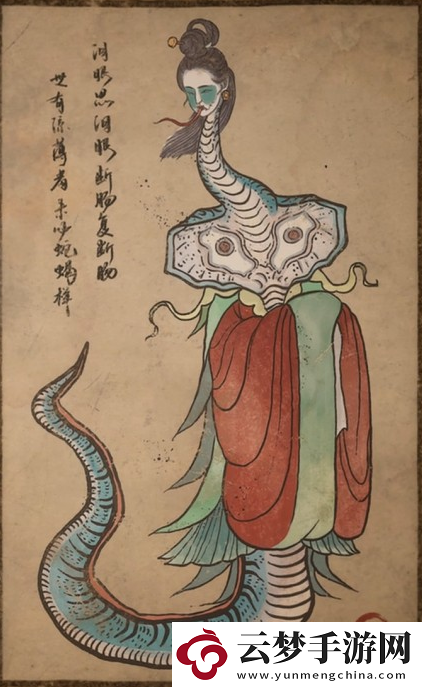 泪眼思泪眼断肠复断肠
世有凉薄者来吵蛇蝎样
云梦手游网
www.yunmengchina.com